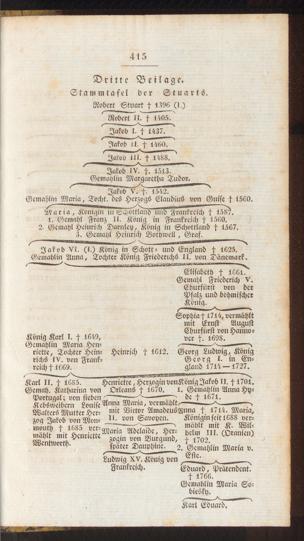 415
Dritte Beilage.
Stammtafel der Stuarts.
Robert Stuart † 1396 (I.)
Robert II. † 1405.
Jakob I. † 1437.
Jakob II. † 1460.
Jakob III. † 1488.
Jakob IV. †. 1513.
Gemahlin Margaretha Tudor.
Jakob V. †. 1542.
Gemahlinn Maria, Tocht. des Herzogs Claudius von Guise † 1560.
Maria, Königin in Schottland und Frankreich † 1587.
1. Gemahl Franz II. König in Frankreich † 1560.
2. Gemahl Heinrich Darnley, König in Schottland † 1567.
3. Gemahl Heinrich Bothwell, Graf.
Jakob VI. (I.) König in Schott- und England † 1625.
Gemahlinn Anna, Tochter König Friederichs II. von Dänemark.
Elisabeth † 1661.
Gemahl Friederich V.
Churfürst von der
Pfalz und böhmischer
König.
Sophia † 1714, vermählt
mit Ernst August
Churfürst von Hannover
†. 1698.
König Karl I. † 1649,
Gemahlinn Maria Henriette,
Tochter Heinrichs
IV. von Frankreich
† 1669.
Heinrich † 1612.
Georg Ludwig, König
Georg I. in England
1714 — 1727.
Karl II. † 1685.
Gemah. Katharina von
Portugal; von sieben
Kebsweibern Louise
Walters Mutter Herzog
Jakob von Monmouth
† 1685 vermählt
mit Henriette
Wentworth.
Henriette, Herzogin von
Orleans † 1670.
Anna Maria, vermählt
mit Victor Amadeus
II. von Savoyen.
Maria Adelaide, Herzogin
von Burgund,
später Dauphine.
Ludwig XV. König von
Frankreich.
König Jakob II. † 1701.
1. Gemahlinn Anna Hyde
† 1671.
Anna † 1714. Maria,
Königin seit 1688 vermählt
mit K. Wilhelm
III. (Oranien)
† 1702.
2. Gemahlinn Maria v.
Este.
Eduard, Prätendent.
† 1766.
Gemahlinn Maria Sobiesky.
Karl Eduard,